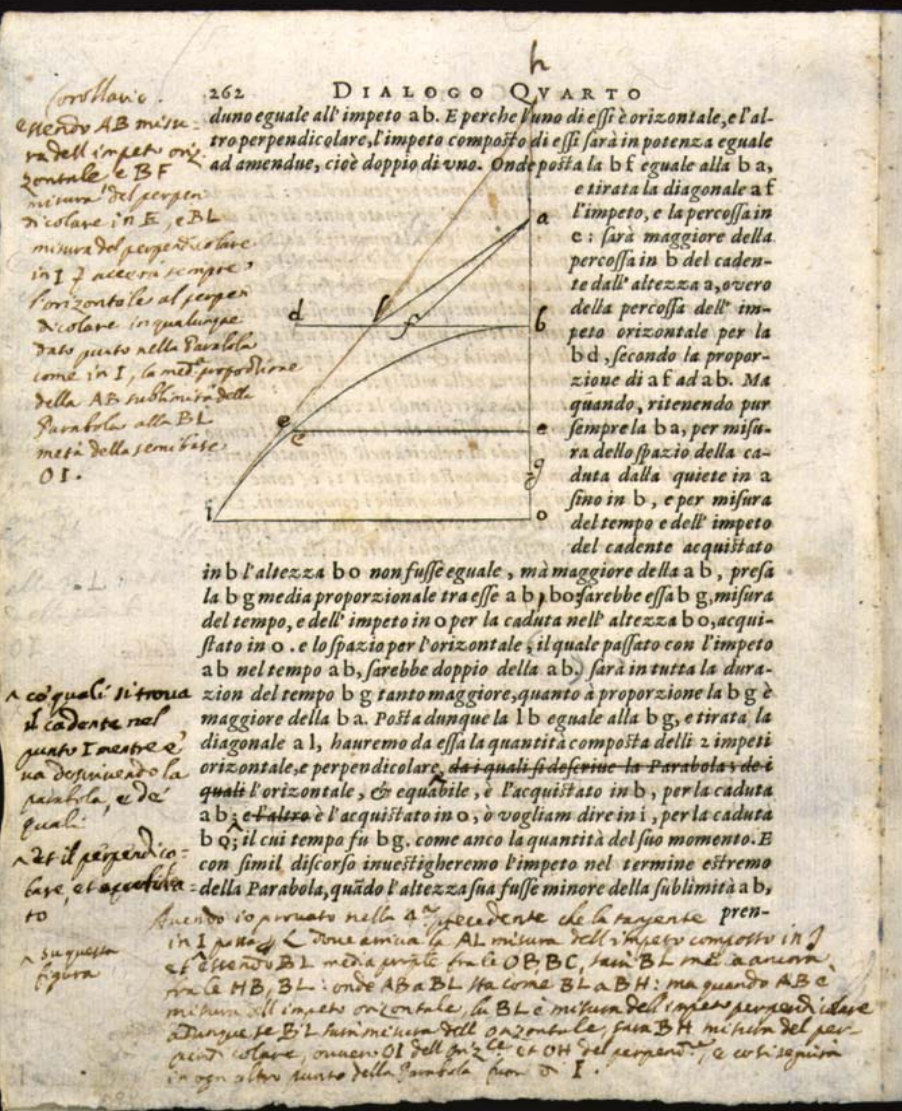 h
262 DIALOGO QVARTO
duno eguale all' impeto ab. E perche l'uno di essi è orizontale, e l'al-
tro perpendicolare, l'impeto composto di essi sarà in potenza eguale
ad amendue, cioè doppio di vno. Onde posta la bf eguale alla ba,
e tirata la diagonale af
l'impeto, e la percossa in
e: sarà maggiore della
percossa in b del caden-
te dall' altezza a, overo
della percossa dell' im-
peto orizontale per la
bd, secondo la propor-
zione di af ad ab. Ma
quando, ritenendo pur
sempre la ba, per misu-
ra dello spazio della ca-
duta dalla quiete in a
sino in b, e per misura
del tempo e dell' impeto
del cadente acquistato
in b l'altezza bo non fusse eguale, mà maggiore della ab, presa
la bg media proporzionale tra esse ab, bo, sarebbe essa bg, misura
del tempo, e dell' impeto in o per la caduta nell' altezza bo, acqui-
stato in o. e lo spazio per l'orizontale, il quale passato con l'impeto
ab nel tempo ab, sarebbe doppio della ab, sarà in tutta la dura-
zion del tempo bg tanto maggiore, quanto à proporzione la bg è
maggiore della ba. Posta dunque la lb eguale alla bg, e tirata la
diagonale al, hauremo da essa la quantità composta delli 2 impeti
orizontale, e perpendicolare, da i quali si descriue la Parabola; de i
quali l'orizontale, & equabile, è l'acquistato in b, per la caduta
ab; e l'altro è l'acquistato in o, ò vogliam dire in i, per la caduta
bo; il cui tempo fu bg. come anco la quantità del suo momento. E
con simil discorso inuestigheremo l'impeto nel termine estremo
della Parabola, quãdo l'altezza sua fusse minore della sublimità ab,
pren-
a
d
l
f
b
e
c
e
g
i
o
Corollario.
essendo AB misu-
ra dell impeto oriz-
zontale e BF
misura del perpen
dicolare in E, e BL
misura del perpendicolare
in I sempre
l'orizontale al perpen
dicolare in qualunque
dato punto nella Parabola
come in I, la med.ª proporzione
della AB sublimità della
Parabola alla BL
metà della semibase
OI.
^ co' quali si troua
il cadente nel
punto I mentre e'
ua descriuendo la
parabola, e de'
quali
^ et il perpendico-
lare,
to
^ su questa
figura
Auendo io prouato nella 4ª precedente che la tangente
in I passa L doue arriua la AL misura dell'impeto composto in I
et essendo BL media fra le OB, BC, sarà BL media ancora
fra le HB, BL: onde AB a BL sta come BL a BH: ma quando AB è
misura dell impeto orizontale, la BL è misura dell impeto perpendicolare
adunque se BL sarà misura dell orizontale, sarà BH misura del per-
pendicolare, ouuero OI dell oriz.le et OH del perpend.re, e così seguirà
in ogn altro punto della Parabola fuor di I.